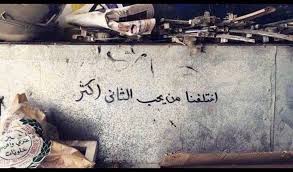 اختلفنا من يحب الثاني أكثر